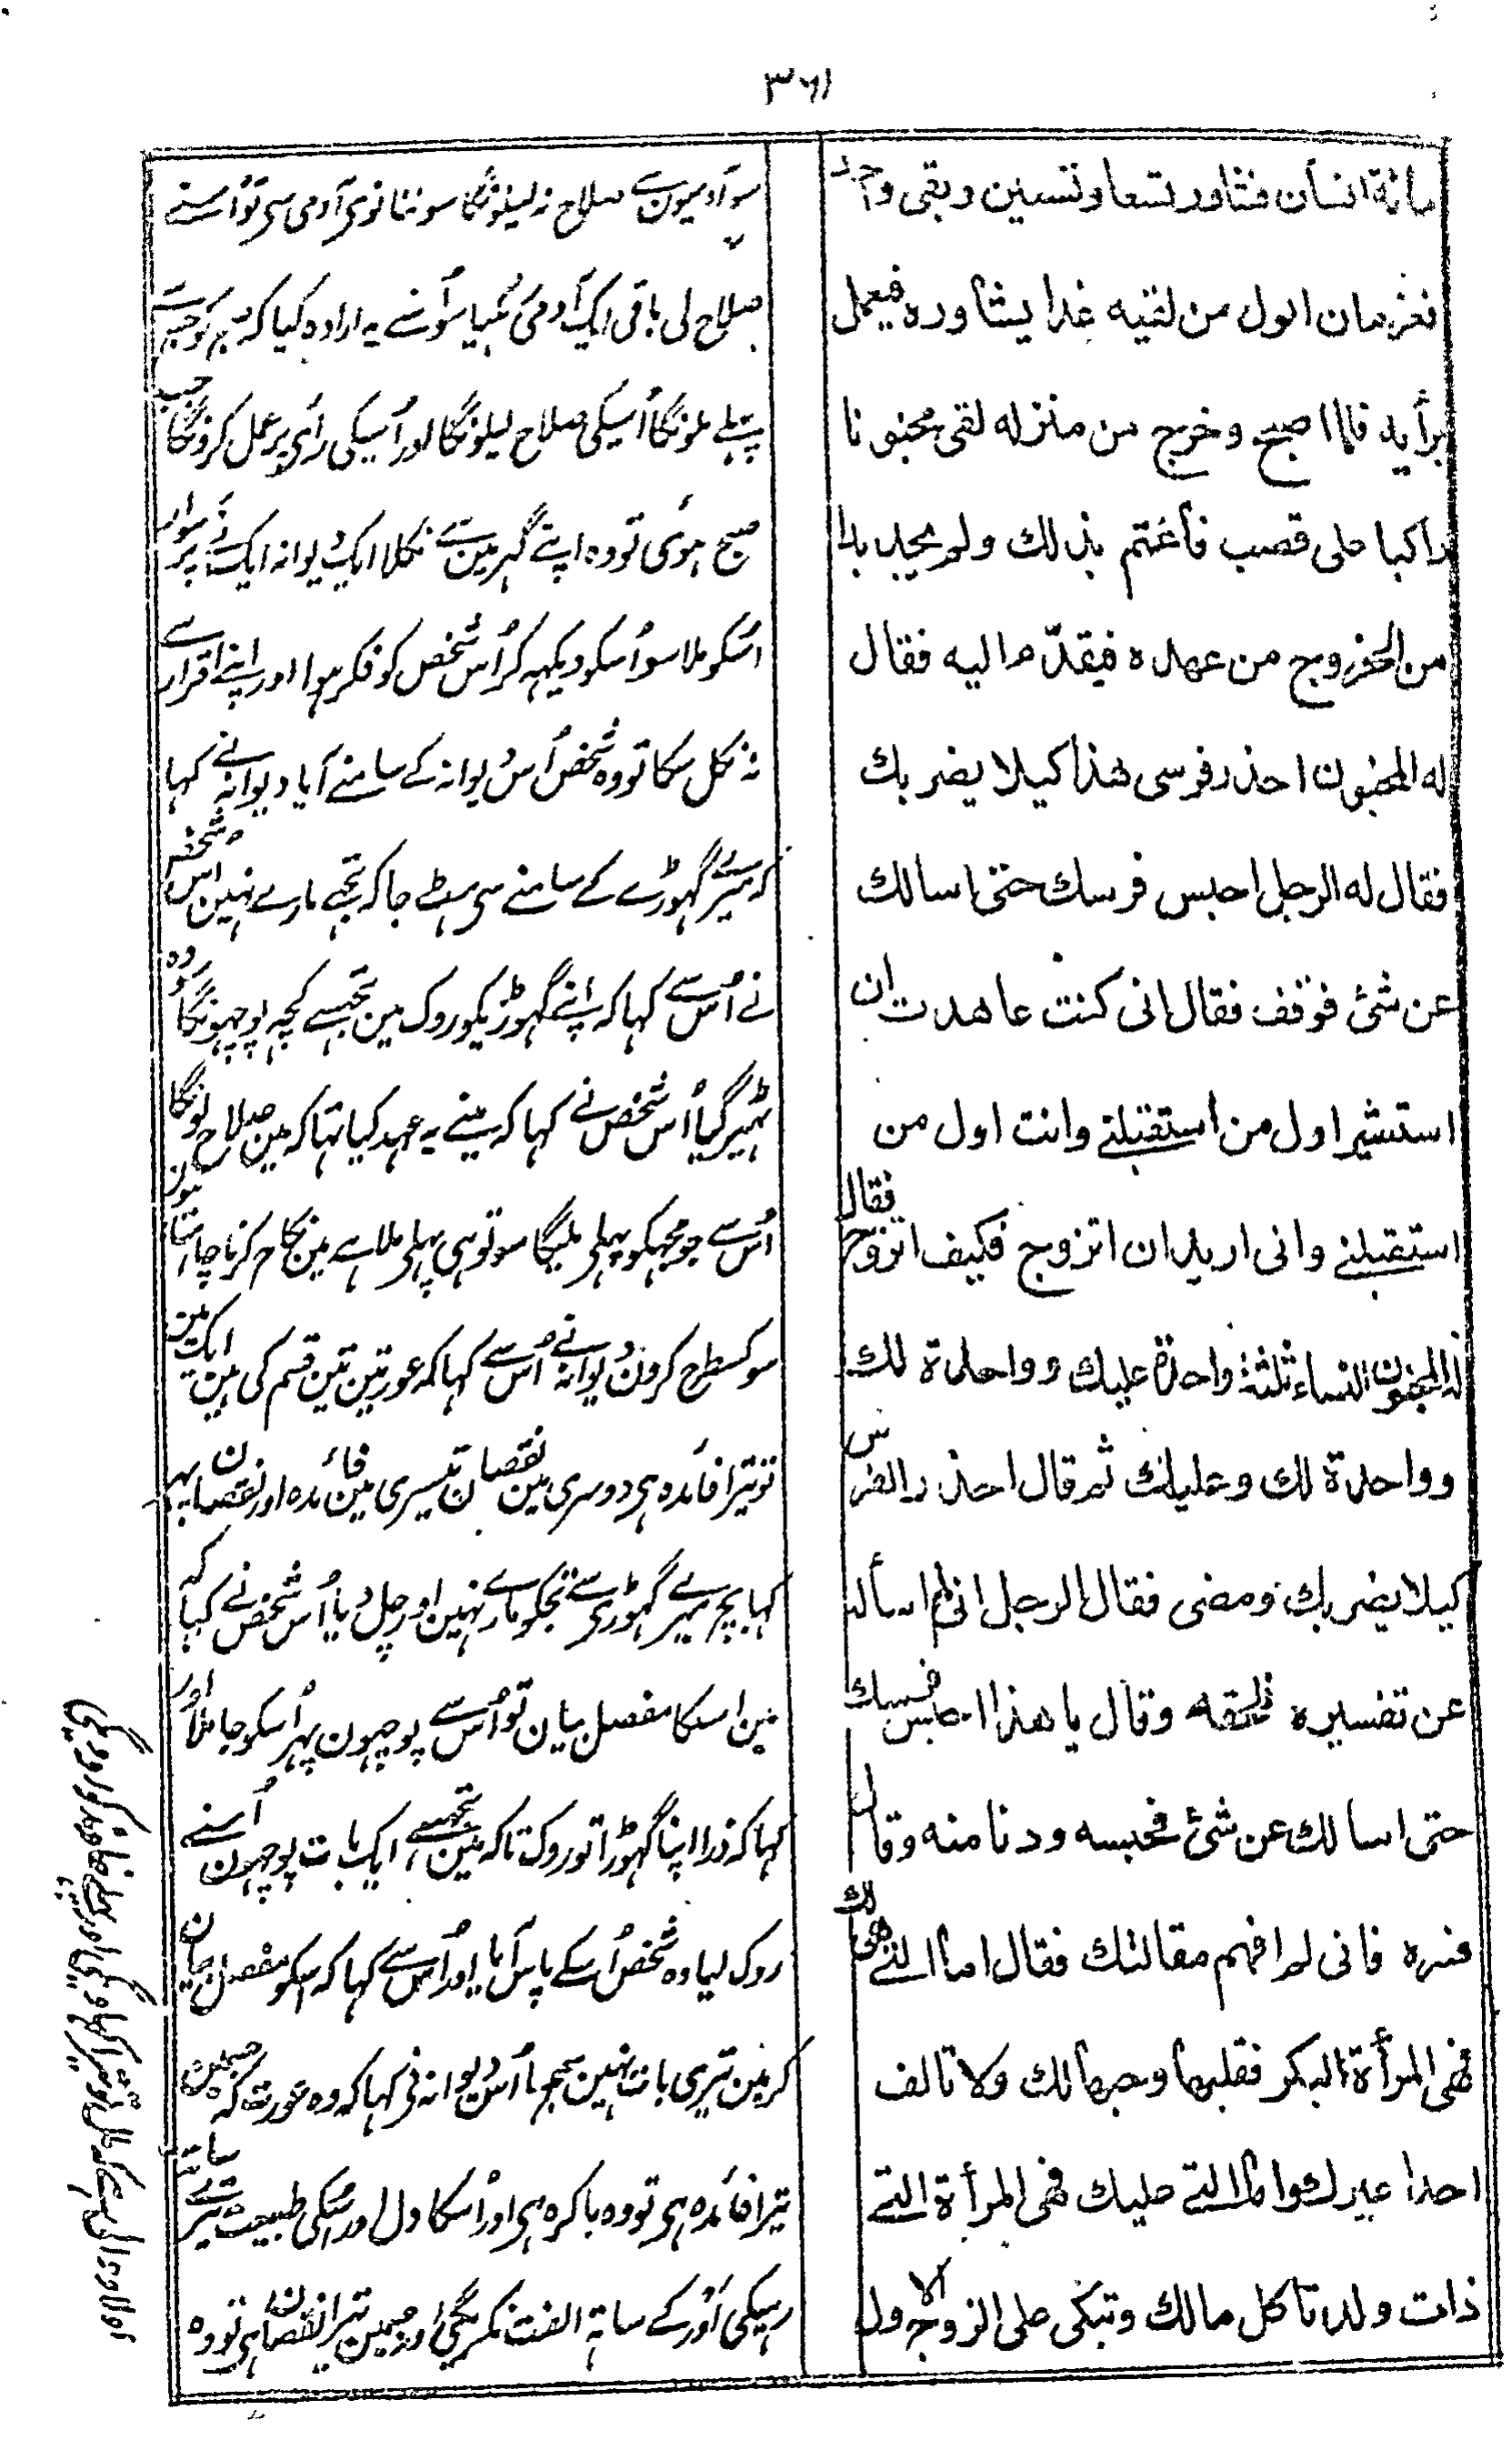 ۳۶۱
مائة انسان فشاور تسعا وتسعين وبقی واحد
فعزم ان اول من لقيه غدا يشاوره فيعمل
برأيه فلما اصبح وخرج من منزله لقی مجنونا
راكبا علی قصب فأغتم بذلك ولم يجد بدا
من الخروج من عهده فيقدّم اليه فقال
له المجنون احذر فرسی هذا كيلا يضربك
فقال له الرجل احبس فرسك حتی اسالك
عن شئ فوقف فقال انی كنت عاهدت ان
استشير اول من استقبلنے وانت اول من
استقبلنے وانی اريد ان اتزوج فكيف اتزوج فقال
له المجنون النساء ثلثة واحدة عليك وواحدة لك
وواحدة لك وعليك ثم قال احذر الفرس
كيلا يضربك ومضی فقال الرجل انی لم اساله
عن تفسيره فلحقه وقال يا هذا احبس فرسك
حتی اسالك عن شئ فحبسه ودنا منه وقال
فسره فانی لم افهم مقالتك فقال اما التے هی لك
فهی المرأة البكر فقلبها وحبها لك ولا تالف
احدا غيرك واما التے عليك فهی المرأة التے
ذات ولد تاكل مالك وتبكی علی الزوج الاول
سو آدمیون سے صلاح نہ لیلونگا سو ننانوی آدمی سی تو اُسنے
صلاح لی باقی ایک آدمی رہگیا سو اُسنے یہ ارادہ کیا کہ صبح کو جس سے
پہلے ملونگا اُسیکی صلاح لیلونگا اور اُسیکی رای پر عمل کرونگا جب
صبح ہوئی تو وہ اپنے گہر مین سے نکلا ایک دیوانہ ایک نَے پر سوار
اُسکو ملا سو اُسکو دیکہہ کر اُس شخص کو فکر ہوا اور اپنے اقرار سے
نہ نکل سکا تو وہ شخص اُس دیوانہ کے سامنے آیا دیوانہ نے کہا
کہ میرے گہوڑے کے سامنے سی ہٹ جا کہ تجہے مارے نہین اس شخص
نے اُس سے کہا کہ اپنے گہوڑیکو روک مین تجہسے کچہہ پوچہونگا وہ
ٹہیر گیا اُس شخص نے کہا کہ مینے یہ عہد کیا تہا کہ مین صلاح لونگا
اُس سے جو مجہکو پہلی ملیگا سو تو ہی پہلی ملا ہے مین نکاح کرنا چاہتا ہون
سو کسطرح کرون دیوانہ نے اُس سے کہا کہ عورتین تین قسم کی ہین ایک مین
تو تیرا فائدہ ہی دوسری مین نقصان تیسری مین فائدہ اور نقصان پہر
کہا بچ میرے گہوڑی سے تجکو مارے نہین اور چل دیا اُس شخص نے کہا کہ
مین اسکا مفصل بیان تو اُس سے پوچہون پہر اُسکو جا ملا اور
کہا کہ ذرا اپنا گہوڑا تو روک تاکہ مین تجہسے ایک بات پوچہون اُسنے
روک لیا وہ شخص اُسکے پاس آیا اور اُس سے کہا کہ اسکو مفصل بیان
کر مین تیری بات نہین سمجہا اُس دیوانہ نی کہا کہ وہ عورت کہ جسمین
تیرا فائدہ ہی تو وہ باکرہ ہی اور اُسکا دل اور اُسکی طبیعت تیرے ساتہہ
رہیگی اور کے ساتہ الفت نکریگی اور جسمین تیرا نقصان ہی تو وہ